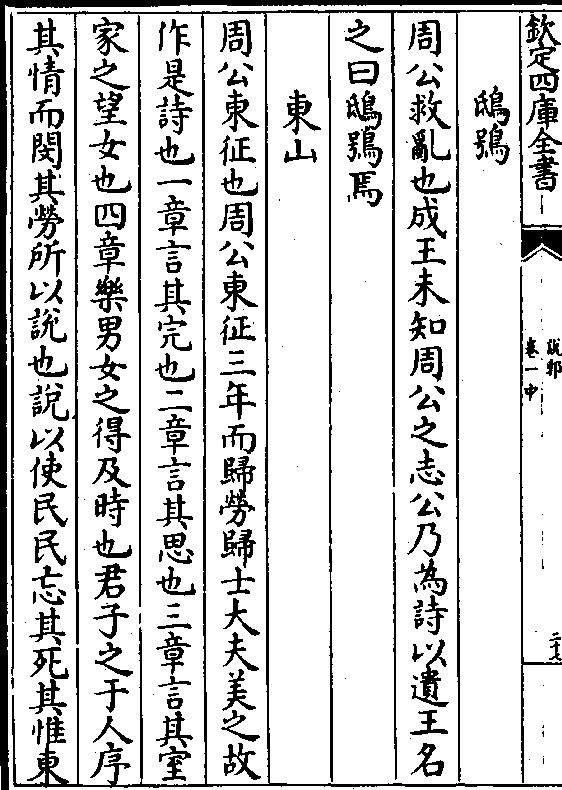 欽定四庫全書
說郛
卷一中
二十七
鴟鴞
周公救亂也成王未知周公之志公乃為詩以遺王名
之曰鴟鴞焉
東山
周公東征也周公東征三年而歸勞歸士大夫美之故
作是詩也一章言其完也二章言其思也三章言其室
家之望女也四章樂男女之得及時也君子之于人序
其情而閔其勞所以說也說以使民民忘其死其惟東